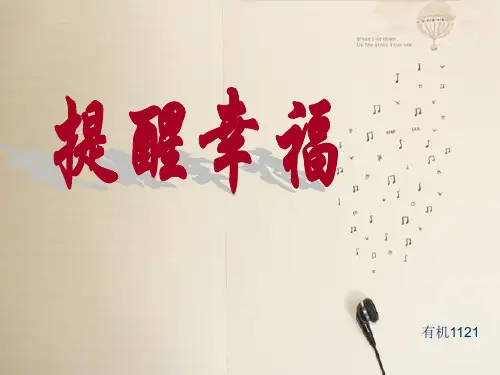 提醒幸福
有机1121